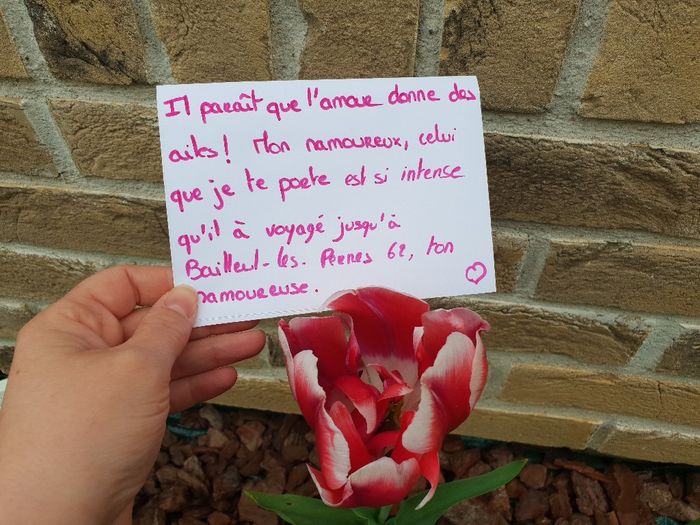 Il paraît que l'amour donne des
ailes! Mon namoureux, celui
que je te porte est si intense
qu'il à voyagé jusqu'à
Bailleul-les-Pernes 62, ton
namoureuse.